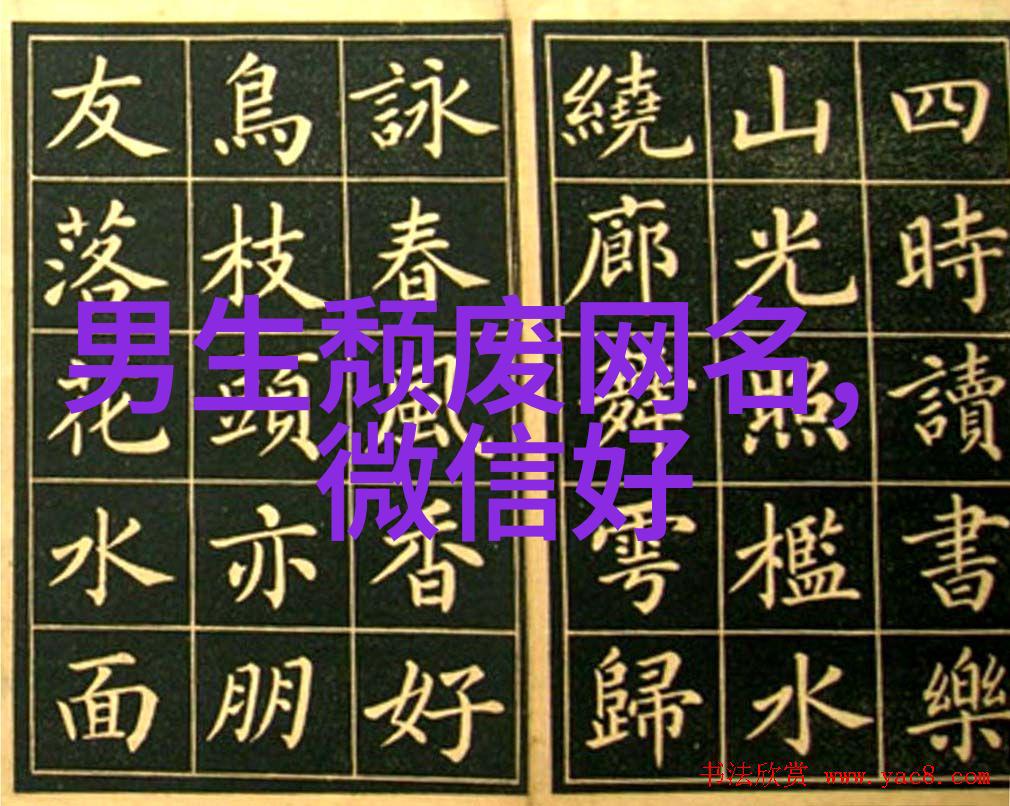 四時讀書樂
山光照檻水
繞廊舞雩歸
詠春風香好
鳥枝頭亦朋
友落花水面
男生颓废网名,
微信好
书法欣赏 www.yac8.com